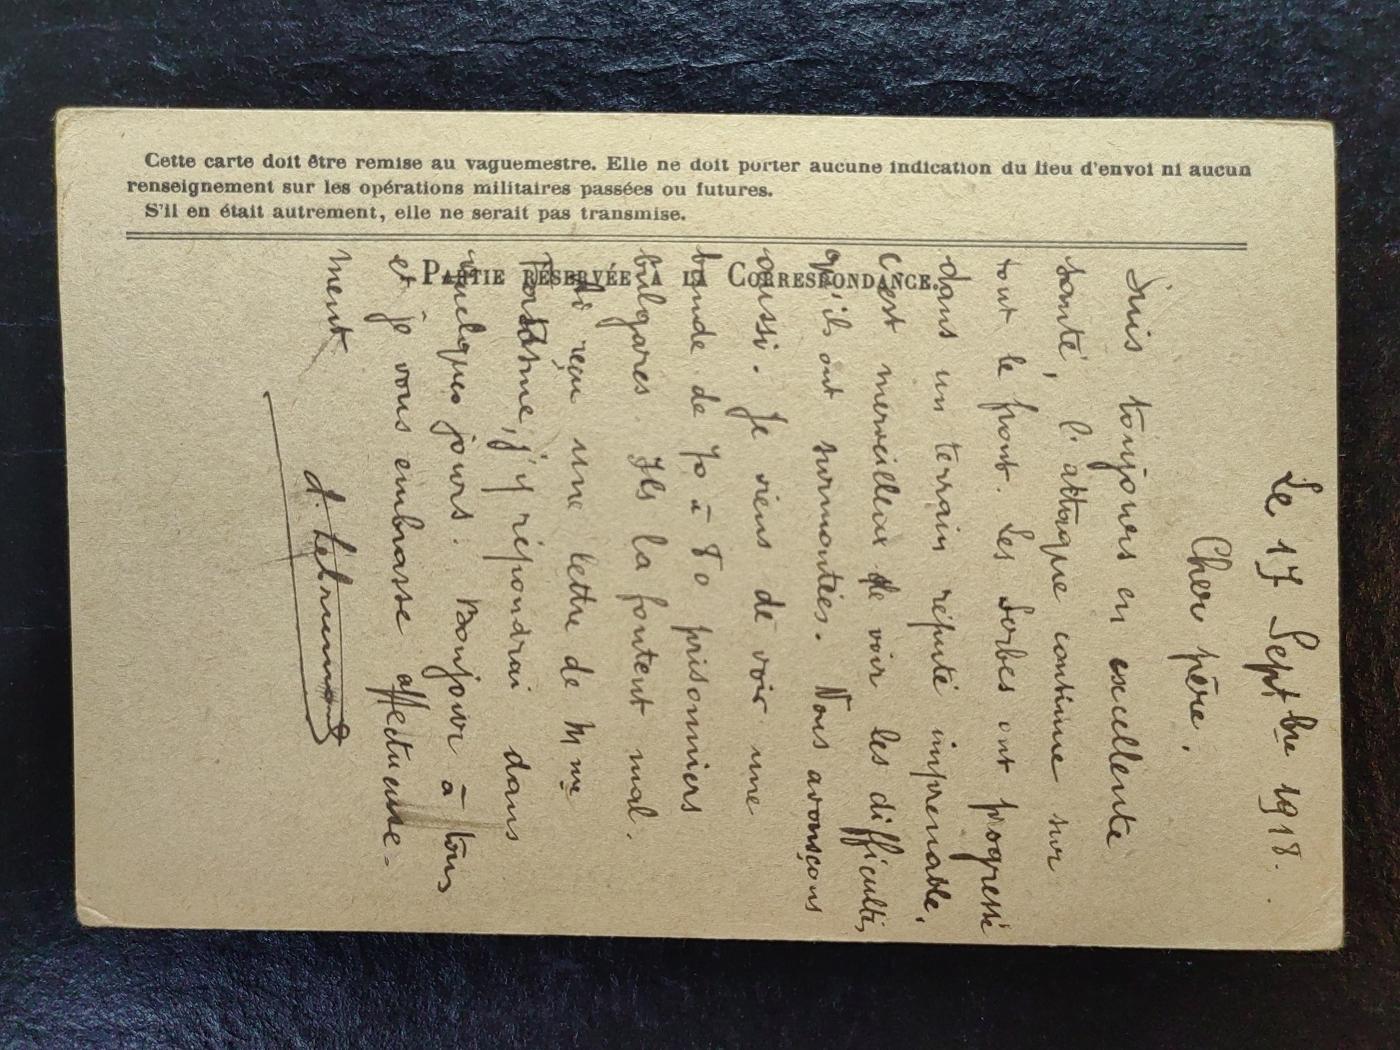 Cette carte doit être remise au vaguemestre. Elle ne doit porter aucune indication du lieu d'envoi ni aucun
renseignement sur les opérations militaires passées ou futures.
S'il en était autrement, elle ne serait pas transmise.
PARTIE RÉSERVÉE À LA CORRESPONDANCE.
Le 17 Septbre 1918.
Cher père,
Suis toujours en excellente
santé, l'attaque continue sur
tout le front. Les Serbes ont progressé
dans un terrain réputé imprenable,
c'est merveilleux de voir les difficultés
qu'ils ont surmontées. Nous avançons
aussi. Je viens de voir une
bande de 70 à 80 prisonniers
bulgares. Ils la foutent mal.
Ai reçu une lettre de Mme
j'y répondrai dans
quelques jours. Bonjour à tous
et je vous embrasse affectueuse-
ment